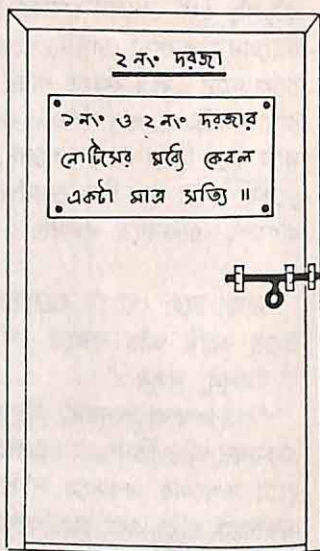 ২ নং দরজা
১ নং ও ২ নং দরজার
নোটিসের মধ্যে কেবল
একটা মাত্র সত্যি ॥